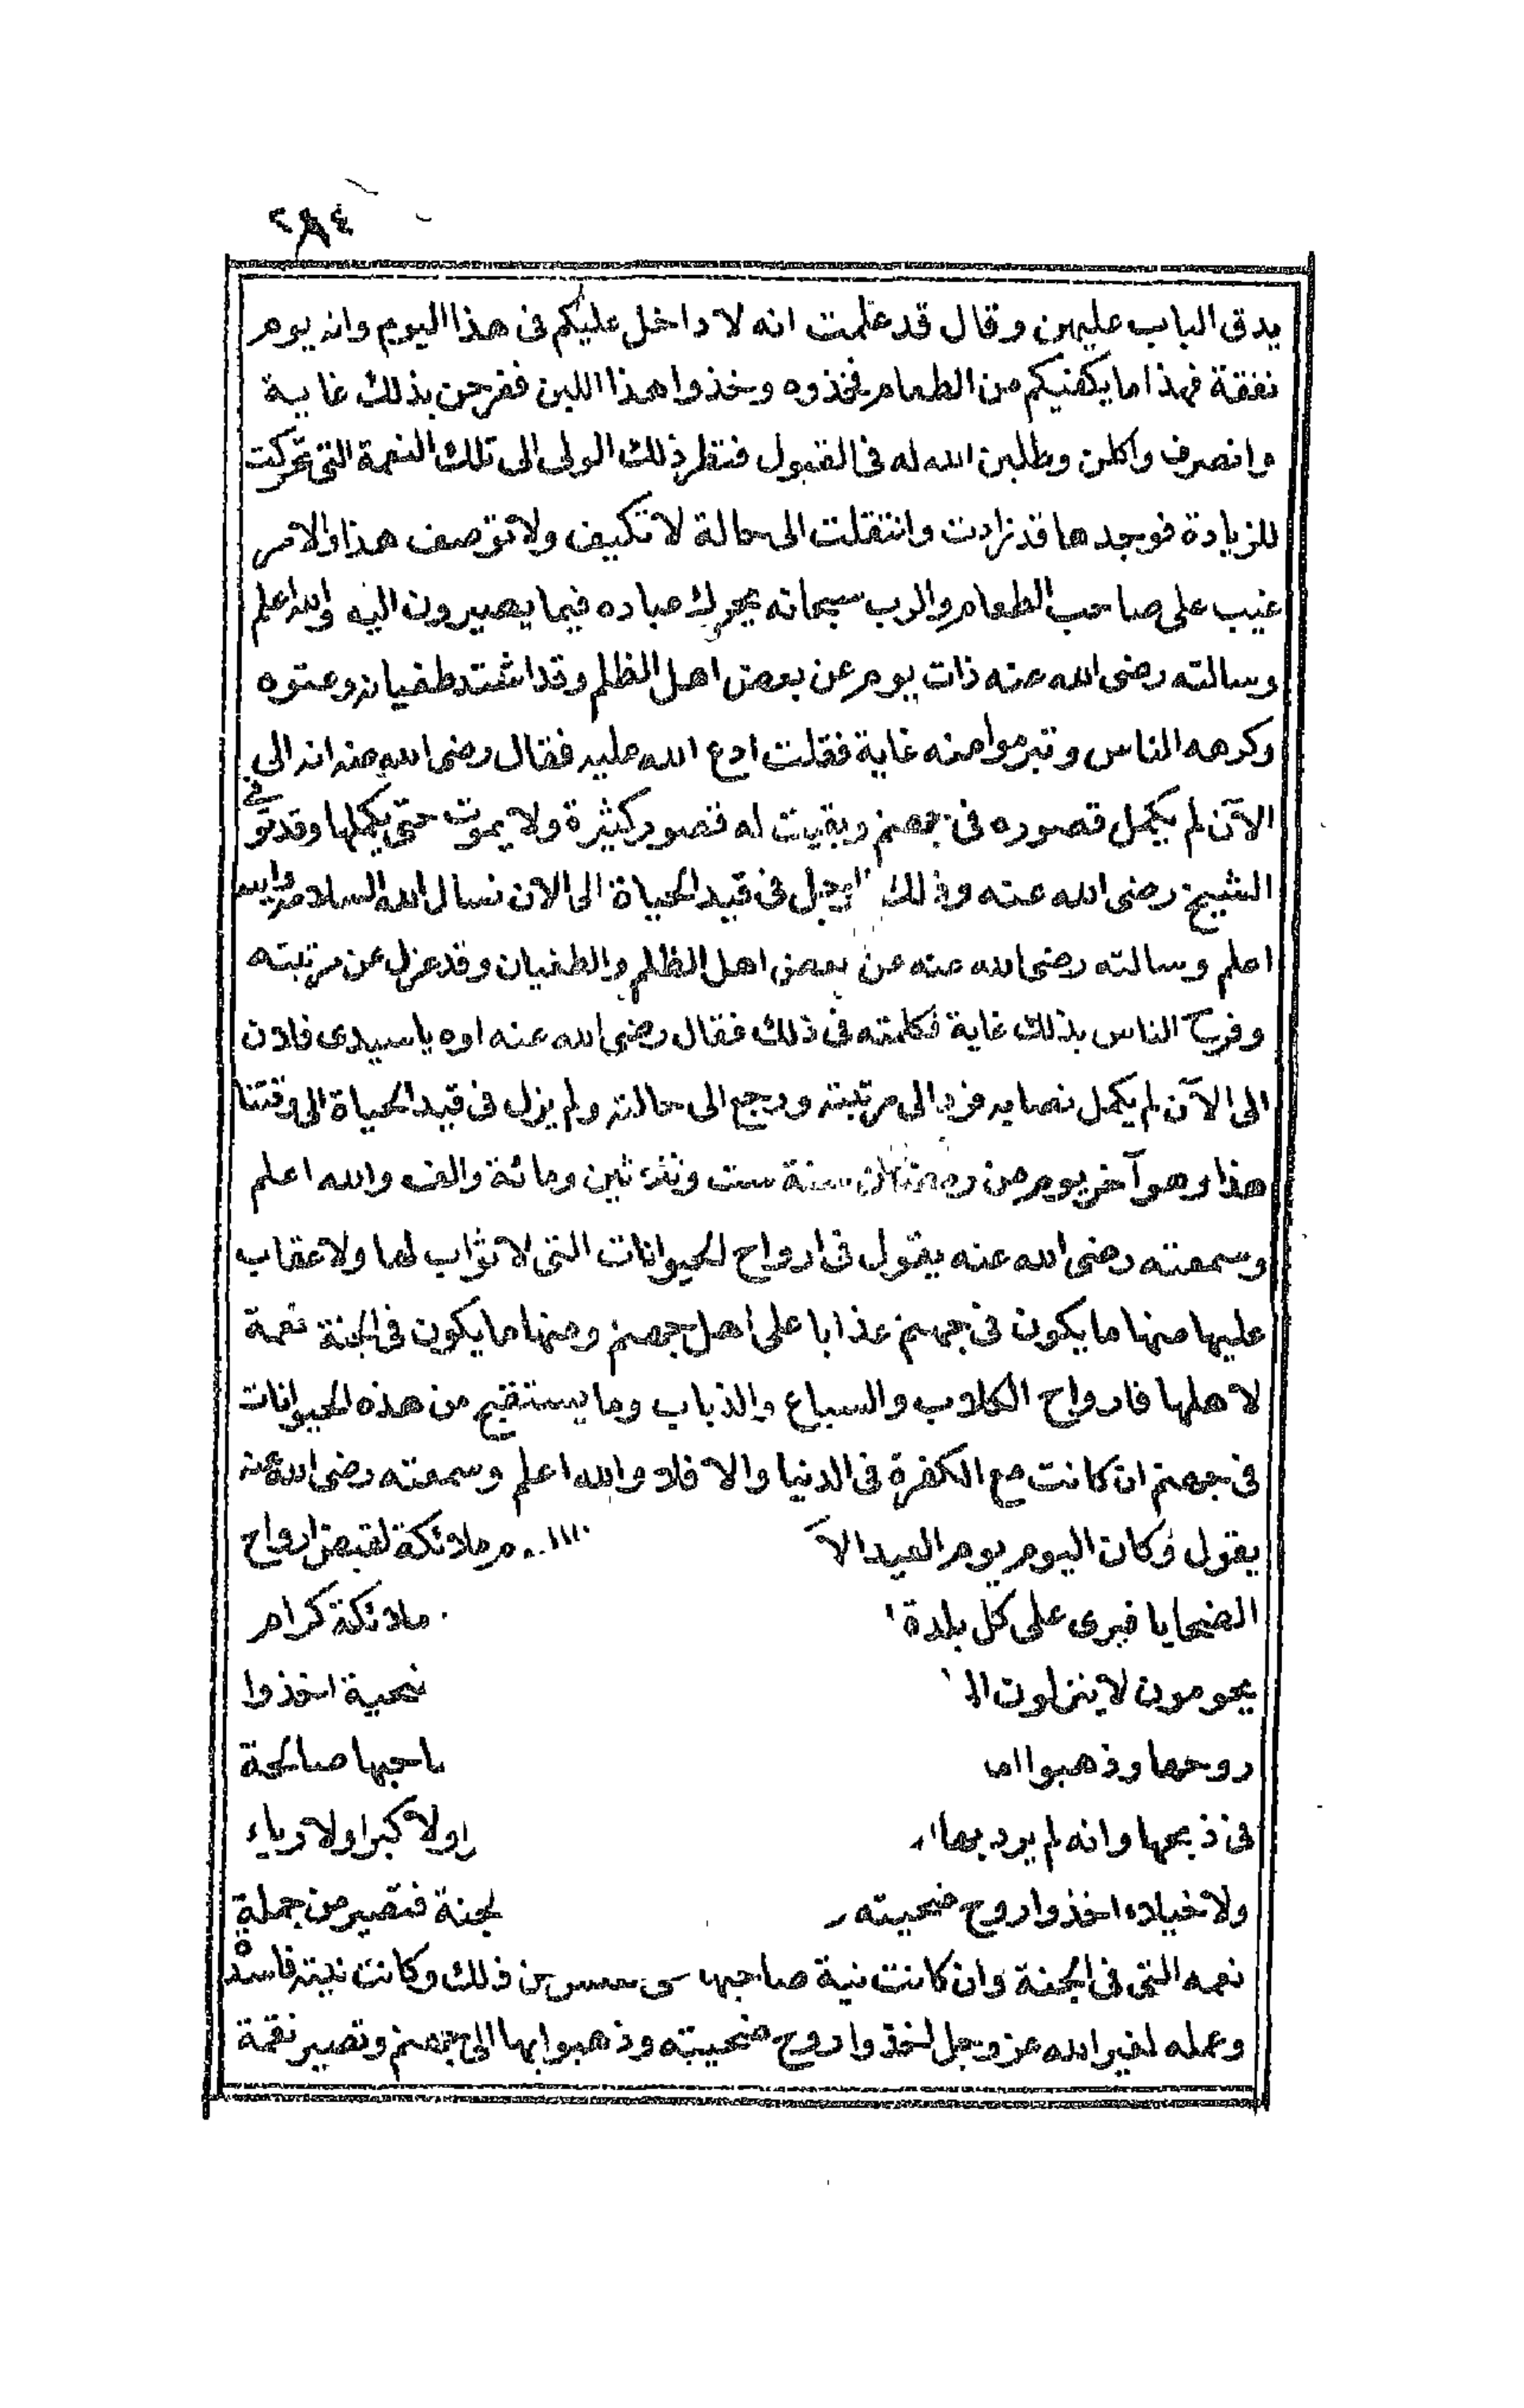 ٢٨٤
يدق الباب عليهن وقال قد علمت انه لا داخل عليكم فى هذا اليوم وانه يوم
نفقة فهذا ما يكفيكم من الطعام فخذوه وخذوا هذا اللبن ففرحن بذلك غاية
وانصرف واكلن وطلبن الله له فى القبول فنظر ذلك الولى الى تلك النعمة التى تحركت
للزيادة فوجدها قد زادت وانتقلت الى حالة لا تكيف ولا توصف هذا والامر
غيب على صاحب الطعام والرب سبحانه يحرك عباده فيما يصيرون اليه والله اعلم
وسالته رضى الله عنه ذات يوم عن بعض اهل الظلم وقد اشتد طغيانه وعتوه
وكرهه الناس وتبرموا منه غاية فقلت ادع الله عليه فقال رضى الله عنه انه الى
الآن لم يكمل قصوره فى جهنم وبقيت له قصور كثيرة ولا يموت حتى يكملها وقد توفى
الشيخ رضى الله عنه وذلك الرجل فى قيد الحياة الى الان نسال الله السلامة والله
اعلم وسالته رضى الله عنه عن بعض اهل الظلم والطغيان وقد عزل عن مرتبته
وفرح الناس بذلك غاية فكلمته فى ذلك فقال رضى الله عنه اوه يا سيدى فلان
الى الآن لم يكمل نصابه فرد الى مرتبته ورجع الى حالته ولم يزل فى قيد الحياة الى وقتنا
هذا وهو آخر يوم من رمضان سنة ست وثلاثين ومائة والف والله اعلم
وسمعته رضى الله عنه يقول فى ارواح الحيوانات التى لا ثواب لها ولا عقاب
عليها منها ما يكون فى جهنم عذابا على اهل جهنم ومنها ما يكون فى الجنة نعمة
لاهلها فارواح الكلاب والسباع والذباب وما يستقبح من هذه الحيوانات
فى جهنم ان كانت مع الكفرة فى الدنيا والا فلا والله اعلم وسمعته رضى الله عنه
يقول وكان اليوم يوم العيد ملائكة لقبض ارواح
الضحايا فيرى على كل بلدة ملائكة كرام
يحومون لا ينزلون اخذوا
روحها وذهبوا صالحة
فى ذبحها وانه لم يرد بها ولا كبرا ولا رياء
ولا خيلاء اخذوا روح ضحيته فتصير من جملة
نعمه التى فى الجنة وان كانت نية صاحبها ذلك وكانت نيته فاسدة
وعمله لغير الله عز وجل اخذوا روح ضحيته وذهبوا بها الى جهنم وتصير نقمة